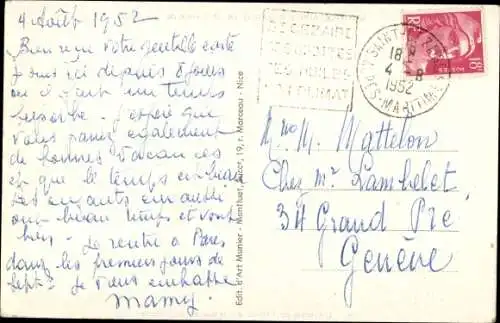 4 Août 1952
Bien reçu votre gentille carte
je suis ici depuis 8 jours
où il fait un temps
superbe. J'espère que
vous passez également
de bonnes vacances
et que le temps est beau
les enfants ont aussi
ont beau temps et vont
bien. Je rentre à Paris
dans les premiers jours de
Sept. Je vous embrasse
Mamy.
Edit. d'Art Munier - Monthuet, Succr, 19, r. Marceau - Nice
SES SITES
SON CLIMAT
SAINT-J
18
4 - 8
1952
ALPES-MARITIMES
18F
Mme M. Mattelon
Chez Mr Lamhelet
34 Grand Pré
Genève